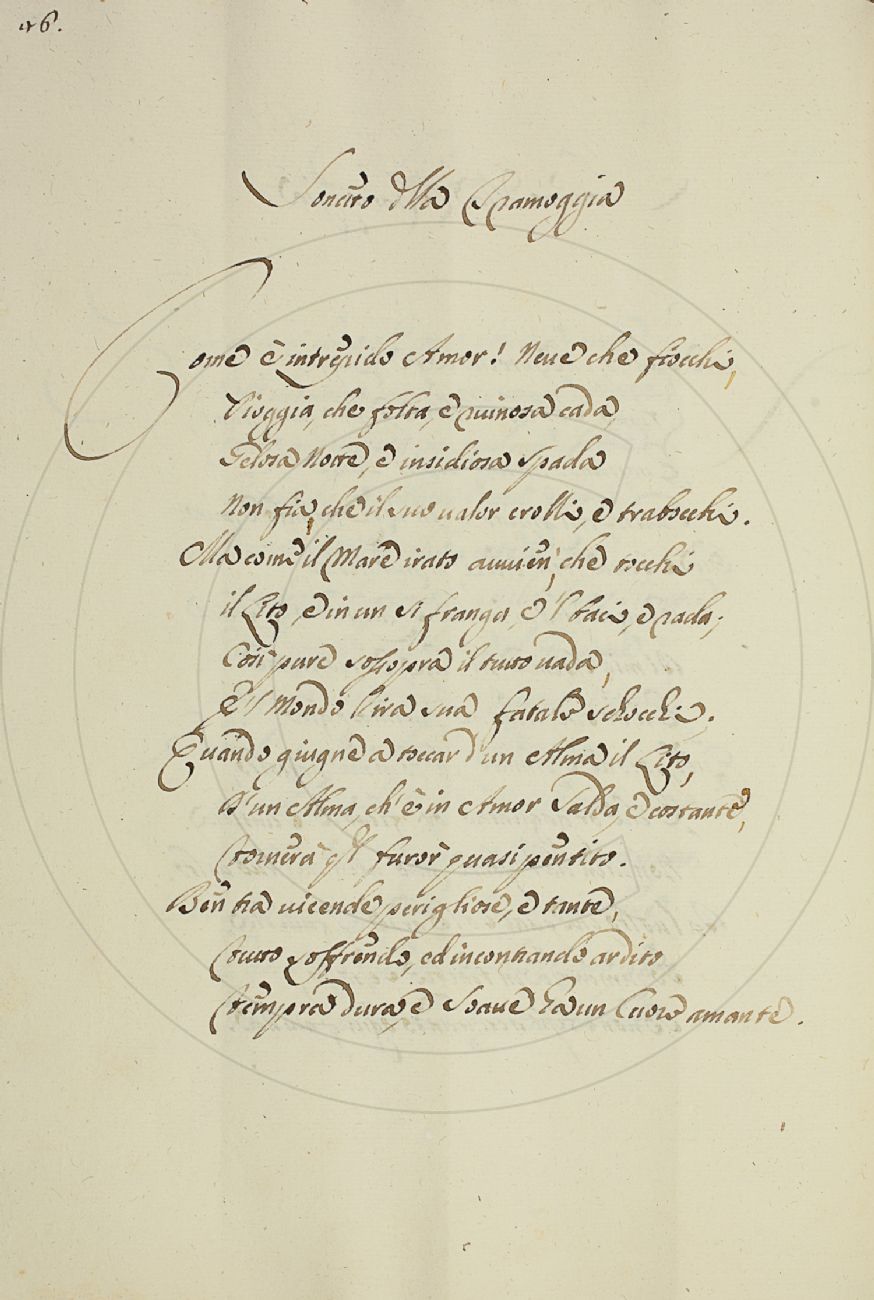 46.
Sonetto della Tramoggia
Come è intrepido Amor! Neue che fiocchi,
Pioggia, che folta, e ruinosa cada,
Gelosa Notte, e insidiosa Spada
Non fia, che il suo ualor crolli, e trabocchi.
Ma come il Mare irato auuien, che tocchi
il Lito, e in un si frange, e 'l baci, e rada;
Così pure sossopra il tutto uada,
E 'l Mondo l'ira sua fatale
Quando giugne a toccar d'un Alma il Lito,
D'un Alma, ch'è in Amor Salda, e costante,
Tornerà furor quasi pentito.
Ben tra uicende perigliose, e tante,
Tutto soffrendo, ed incontrando ardito
Tempra dura, e Soaue ha un Cuore amante.